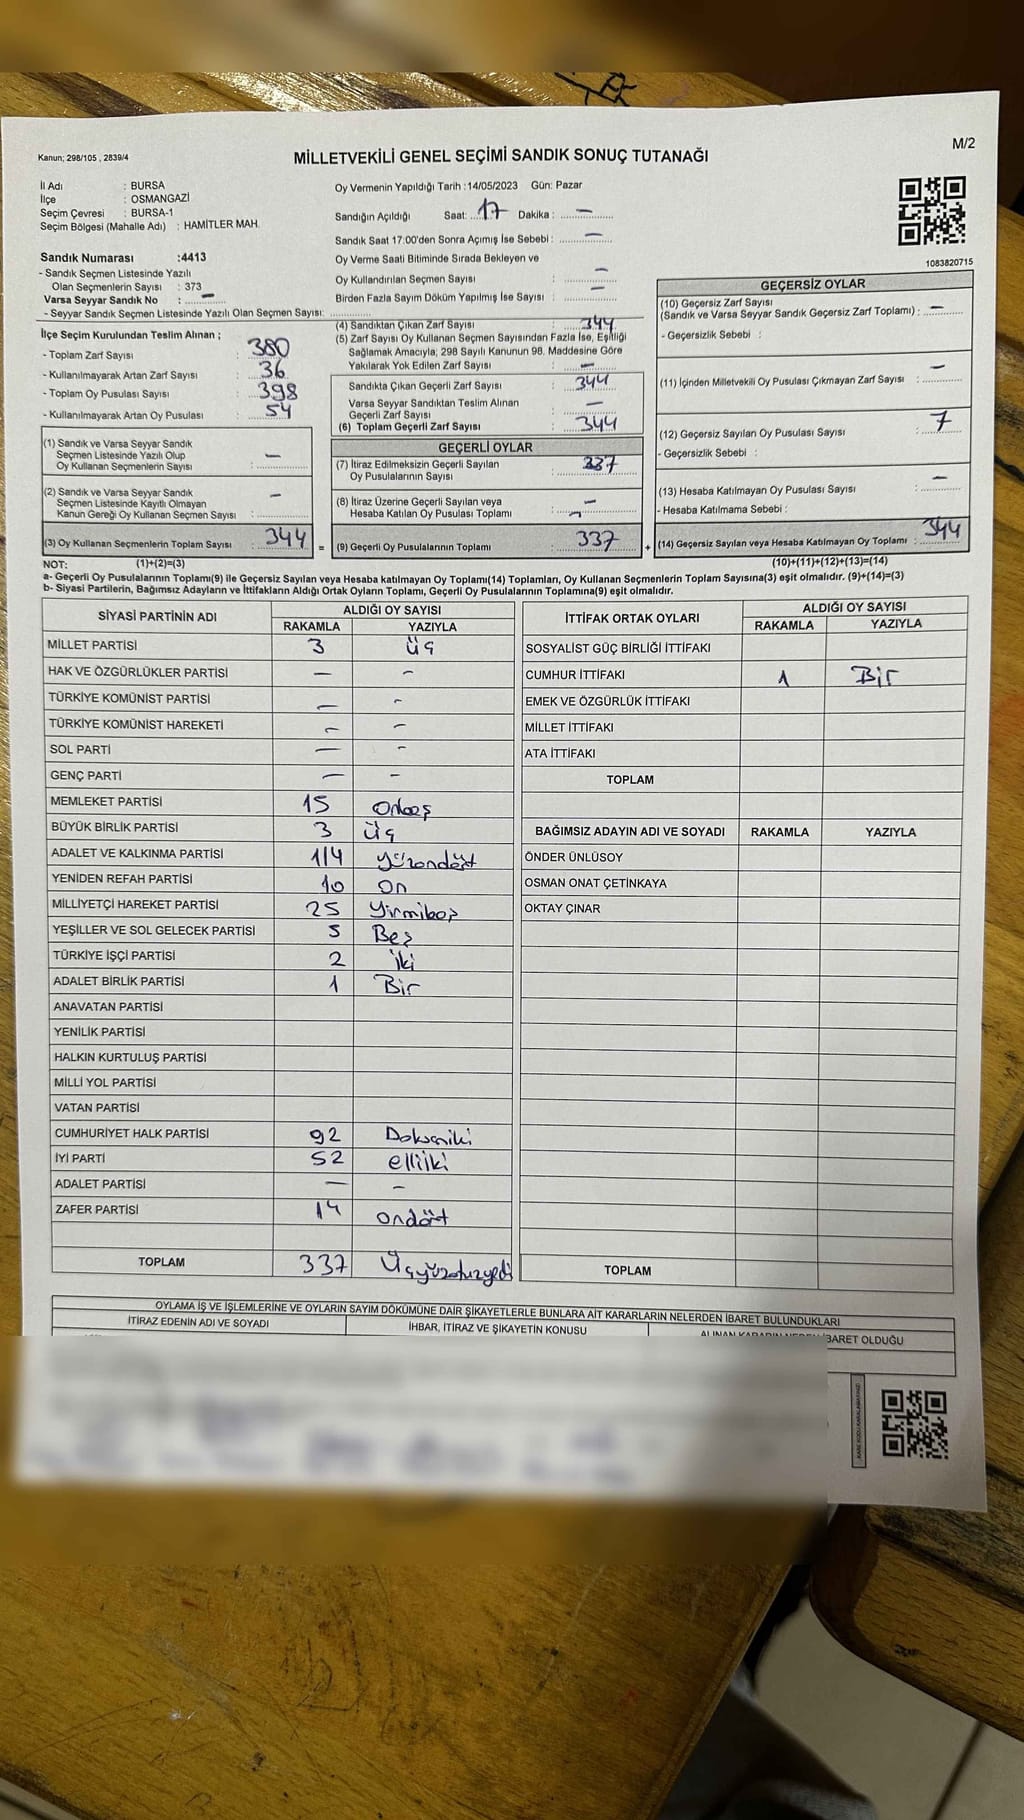 Kanun; 298/105 , 2839/4
MİLLETVEKİLİ GENEL SEÇİMİ SANDIK SONUÇ TUTANAĞI
M/2
İl Adı : BURSA
İlçe : OSMANGAZİ
Seçim Çevresi : BURSA-1
Seçim Bölgesi (Mahalle Adı) : HAMİTLER MAH.
Sandık Numarası :4413
- Sandık Seçmen Listesinde Yazılı
Olan Seçmenlerin Sayısı : 373
Varsa Seyyar Sandık No : –
- Seyyar Sandık Seçmen Listesinde Yazılı Olan Seçmen Sayısı: ............
Oy Vermenin Yapıldığı Tarih :14/05/2023 Gün: Pazar
Sandığın Açıldığı Saat: 17 Dakika : –
Sandık Saat 17:00'den Sonra Açımış İse Sebebi : –
Oy Verme Saati Bitiminde Sırada Bekleyen ve
Oy Kullandırılan Seçmen Sayısı : –
Birden Fazla Sayım Döküm Yapılmış İse Sayısı : –
1083820715
İlçe Seçim Kurulundan Teslim Alınan ;
- Toplam Zarf Sayısı : 380
- Kullanılmayarak Artan Zarf Sayısı : 36
- Toplam Oy Pusulası Sayısı : 398
- Kullanılmayarak Artan Oy Pusulası : 54
(1) Sandık ve Varsa Seyyar Sandık
Seçmen Listesinde Yazılı Olup
Oy Kullanan Seçmenlerin Sayısı : –
(2) Sandık ve Varsa Seyyar Sandık
Seçmen Listesinde Kayıtlı Olmayan
Kanun Gereği Oy Kullanan Seçmen Sayısı : –
(3) Oy Kullanan Seçmenlerin Toplam Sayısı : 344 =
(4) Sandıktan Çıkan Zarf Sayısı : 344
(5) Zarf Sayısı Oy Kullanan Seçmen Sayısından Fazla İse, Eşitliği
Sağlamak Amacıyla; 298 Sayılı Kanunun 98. Maddesine Göre
Yakılarak Yok Edilen Zarf Sayısı : –
Sandıkta Çıkan Geçerli Zarf Sayısı : 344
Varsa Seyyar Sandıktan Teslim Alınan
Geçerli Zarf Sayısı : –
(6) Toplam Geçerli Zarf Sayısı : 344
GEÇERLİ OYLAR
(7) İtiraz Edilmeksizin Geçerli Sayılan
Oy Pusulalarının Sayısı : 337
(8) İtiraz Üzerine Geçerli Sayılan veya
Hesaba Katılan Oy Pusulası Toplamı : –
(9) Geçerli Oy Pusulalarının Toplamı : 337 +
GEÇERSİZ OYLAR
(10) Geçersiz Zarf Sayısı
(Sandık ve Varsa Seyyar Sandık Geçersiz Zarf Toplamı) : –
- Geçersizlik Sebebi :
(11) İçinden Milletvekili Oy Pusulası Çıkmayan Zarf Sayısı : –
(12) Geçersiz Sayılan Oy Pusulası Sayısı : 7
- Geçersizlik Sebebi :
(13) Hesaba Katılmayan Oy Pusulası Sayısı : –
- Hesaba Katılmama Sebebi :
(14) Geçersiz Sayılan veya Hesaba Katılmayan Oy Toplamı : 344
NOT: (1)+(2)=(3) (10)+(11)+(12)+(13)=(14)
a- Geçerli Oy Pusulalarının Toplamı(9) ile Geçersiz Sayılan veya Hesaba katılmayan Oy Toplamı(14) Toplamları, Oy Kullanan Seçmenlerin Toplam Sayısına(3) eşit olmalıdır. (9)+(14)=(3)
b- Siyasi Partilerin, Bağımsız Adayların ve İttifakların Aldığı Ortak Oyların Toplamı, Geçerli Oy Pusulalarının Toplamına(9) eşit olmalıdır.
SİYASİ PARTİNİN ADI ALDIĞI OY SAYISI
RAKAMLA YAZIYLA
MİLLET PARTİSİ 3 Üç
HAK VE ÖZGÜRLÜKLER PARTİSİ – –
TÜRKİYE KOMÜNİST PARTİSİ – –
TÜRKİYE KOMÜNİST HAREKETİ – –
SOL PARTİ – –
GENÇ PARTİ – –
MEMLEKET PARTİSİ 15 Onbeş
BÜYÜK BİRLİK PARTİSİ 3 Üç
ADALET VE KALKINMA PARTİSİ 114 Yüzondört
YENİDEN REFAH PARTİSİ 10 On
MİLLİYETÇİ HAREKET PARTİSİ 25 Yirmibeş
YEŞİLLER VE SOL GELECEK PARTİSİ 5 Beş
TÜRKİYE İŞÇİ PARTİSİ 2 İki
ADALET BİRLİK PARTİSİ 1 Bir
ANAVATAN PARTİSİ
YENİLİK PARTİSİ
HALKIN KURTULUŞ PARTİSİ
MİLLİ YOL PARTİSİ
VATAN PARTİSİ
CUMHURİYET HALK PARTİSİ 92 Doksaniki
İYİ PARTİ 52 elliiki
ADALET PARTİSİ – –
ZAFER PARTİSİ 14 ondört
TOPLAM 337 Üçyüzotuzyedi
İTTİFAK ORTAK OYLARI ALDIĞI OY SAYISI
RAKAMLA YAZIYLA
SOSYALİST GÜÇ BİRLİĞİ İTTİFAKI
CUMHUR İTTİFAKI 1 Bir
EMEK VE ÖZGÜRLÜK İTTİFAKI
MİLLET İTTİFAKI
ATA İTTİFAKI
TOPLAM
BAĞIMSIZ ADAYIN ADI VE SOYADI RAKAMLA YAZIYLA
ÖNDER ÜNLÜSOY
OSMAN ONAT ÇETİNKAYA
OKTAY ÇINAR
TOPLAM
OYLAMA İŞ VE İŞLEMLERİNE VE OYLARIN SAYIM DÖKÜMÜNE DAİR ŞİKAYETLERLE BUNLARA AİT KARARLARIN NELERDEN İBARET BULUNDUKLARI
İTİRAZ EDENİN ADI VE SOYADI İHBAR, İTİRAZ VE ŞİKAYETİN KONUSU ALINAN KARARIN NEDEN İBARET OLDUĞU